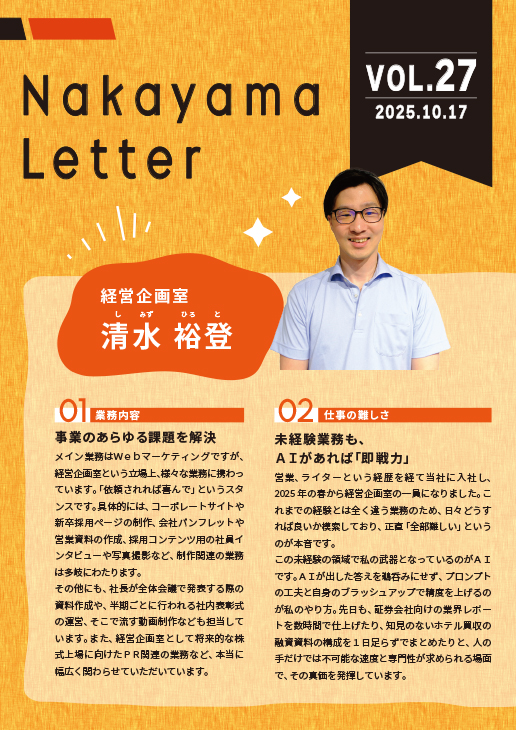 Nakayama
Letter
VOL.27
2025.10.17
経営企画室
し みず ひろ と
清水 裕登
01 業務内容
事業のあらゆる課題を解決
メイン業務はWebマーケティングですが、
経営企画室という立場上、様々な業務に携わっ
ています。「依頼されれば喜んで」というスタ
ンスです。具体的には、コーポレートサイトや
新卒採用ページの制作、会社パンフレットや
営業資料の作成、採用コンテンツ用の社員イ
ンタビューや写真撮影など、制作関連の業務
は多岐にわたります。
その他にも、社長が全体会議で発表する際の
資料作成や、半期ごとに行われる社内表彰式
の運営、そこで流す動画制作なども担当して
います。また、経営企画室として将来的な株
式上場に向けたPR関連の業務など、本当に
幅広く関わらせていただいています。
02 仕事の難しさ
未経験業務も、
AIがあれば「即戦力」
営業、ライターという経歴を経て当社に入社し、
2025年の春から経営企画室の一員になりました。こ
れまでの経験とは全く違う業務のため、日々どうす
れば良いか模索しており、正直「全部難しい」という
のが本音です。
この未経験の領域で私の武器となっているのがAI
です。AIが出した答えを鵜呑みにせず、プロンプト
の工夫と自身のブラッシュアップで精度を上げるの
が私のやり方。先日も、証券会社向けの業界レポー
トを数時間で仕上げたり、知見のないホテル買収の
融資資料の構成を1日足らずでまとめたりと、人の
手だけでは不可能な速度と専門性が求められる場面
で、その真価を発揮しています。